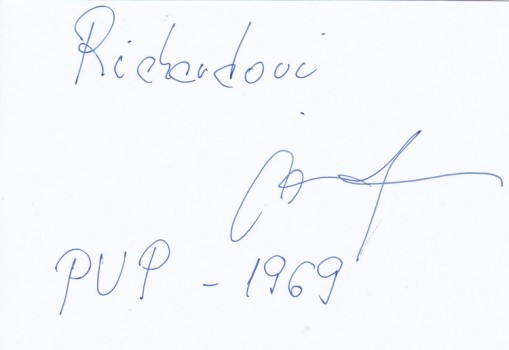 Richardovi
PVP - 1969